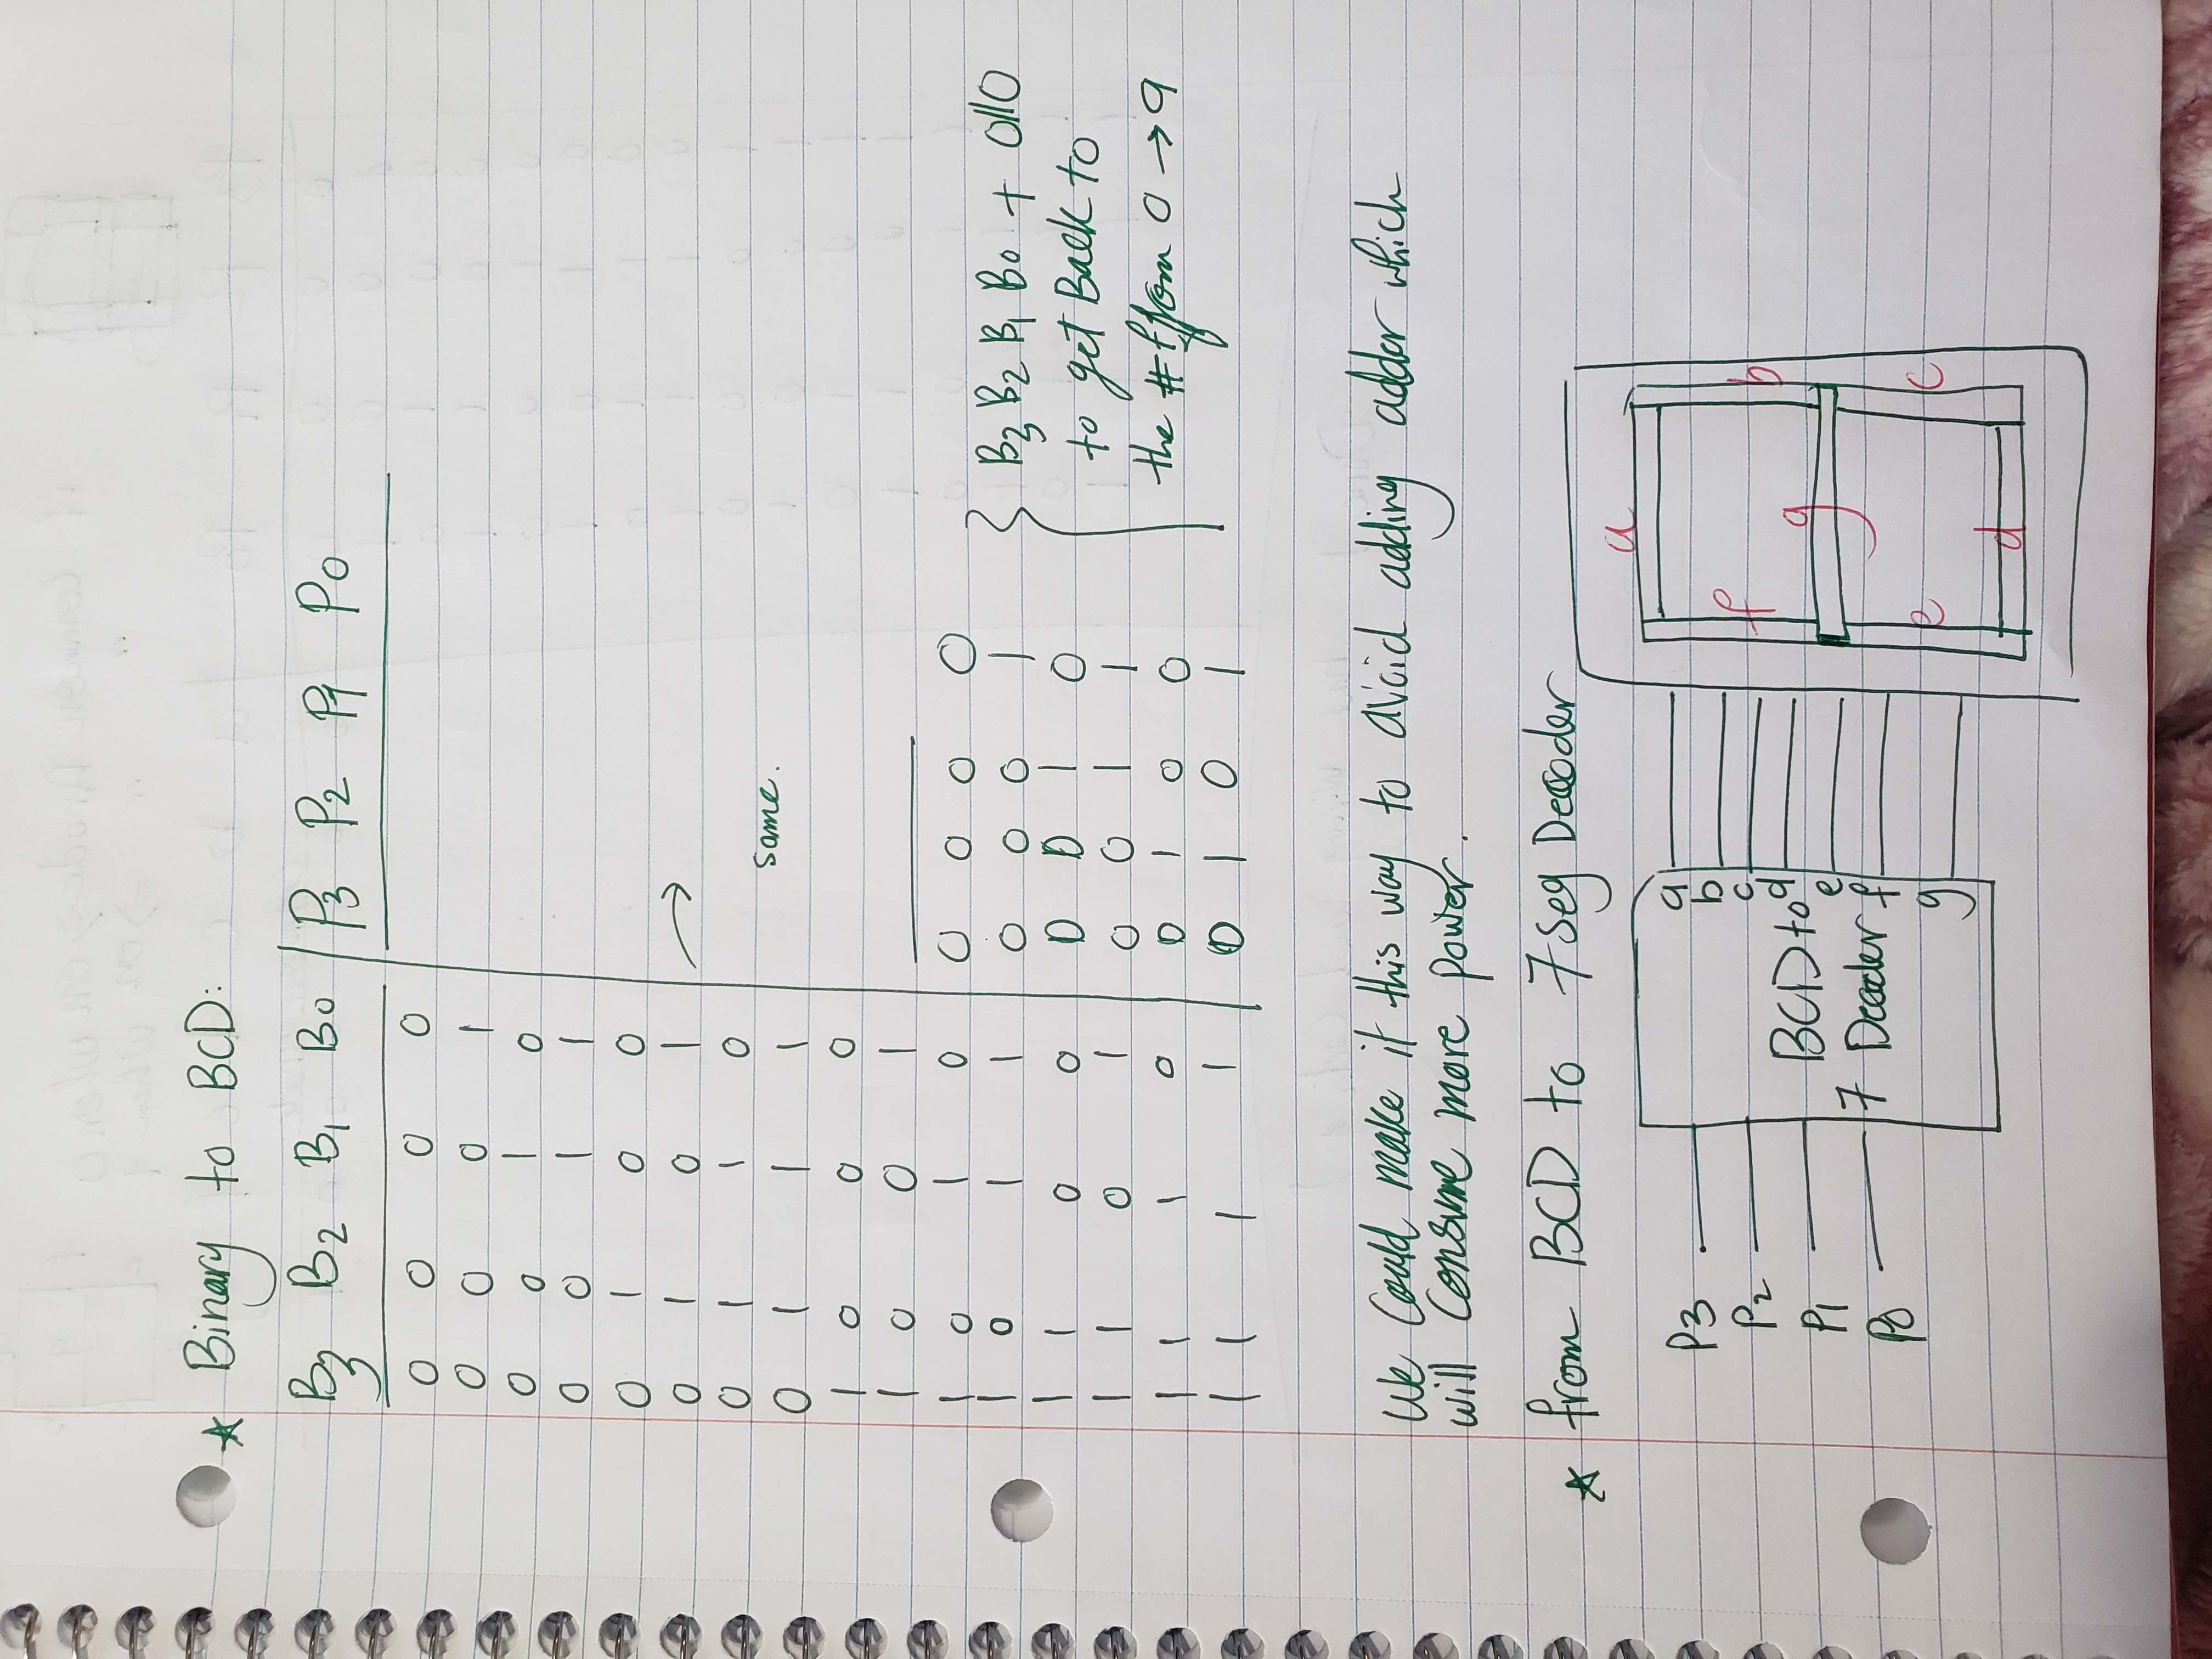 ★ Binary to BCD:
B3 B2 B1 B0 | P3 P2 P1 P0
0 0 0 0
0 0 0 1
0 0 1 0
0 0 1 1
0 1 0 0
0 1 0 1 →
0 1 1 0
same.
0 1 1 1
1 0 0 0
1 0 0 1
1 0 1 0 0 0 0 0
1 0 1 1 0 0 0 1
1 1 0 0 0 0 1 0
1 1 0 1 0 0 1 1
1 1 1 0 0 1 0 0
1 1 1 1 0 1 0 1
} B3 B2 B1 B0 + 0110
to get Back to
the # from 0 → 9
We Could make it this way to avoid adding adder which
will Consume more power.
★ from BCD to 7seg Decoder
P3
P2
P1
P0
BCD to
7 Decoder
a
b
c
d
e
f
g
a
f
b
g
e
c
d